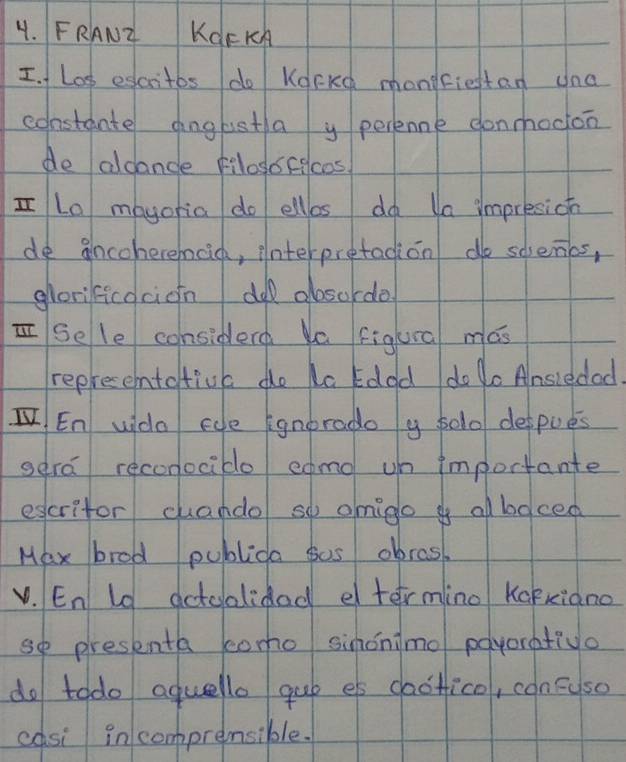 4. FRANZ KaFKA
I. Los escritos de Kafka manifiestan una
constante angustia y perenne conmoción
de alcance filosóficos.
II La mayoria de ellos da la impresión
de incoherencia, interpretación de sueños,
glorificación del absurdo.
III Se le considera la figura más
representativa de la Edad de la Ansiedad.
IV. En vida fue ignorado y solo después
será reconocido como un importante
escritor cuando su amigo y albacea
Max brod publica sus obras.
V. En la actualidad el término Kafkiano
se presenta como sinónimo payorativo
de todo aquello que es caótico, confuso
casi incomprensible.